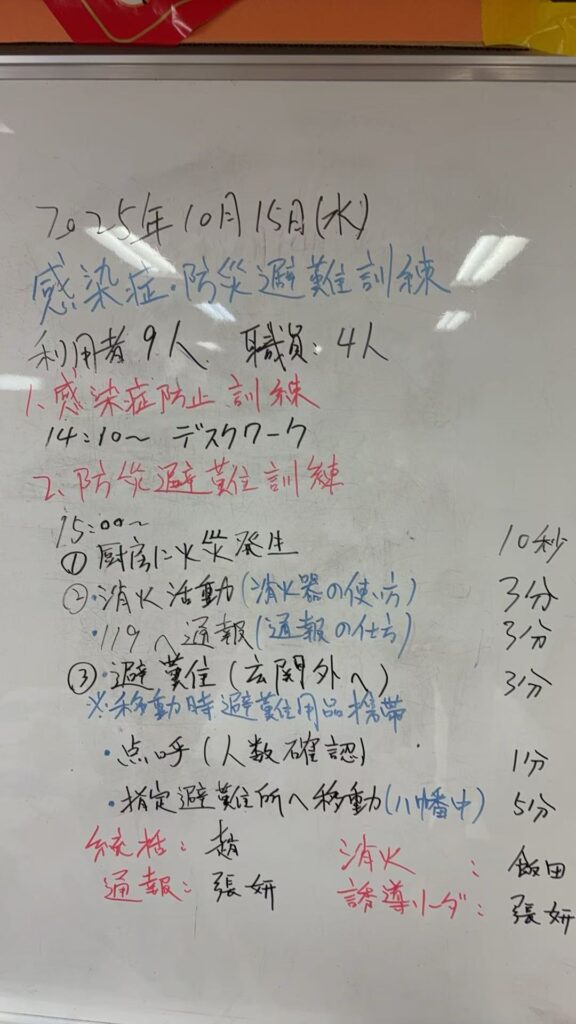 2025年10月15日(水)
感染症・防災避難訓練
利用者9人 職員:4人
1、感染症防止訓練
14:10～ デスクワーク
2、防災避難訓練
15:00～
①厨房に火災発生 10秒
②・消火活動(消火器の使い方) 3分
・119へ通報(通報の仕方) 3分
③・避難(玄関外へ) 3分
※移動時避難用品携帯
・点呼(人数確認) 1分
・指定避難所へ移動(八幡中) 5分
統括:趙 消火:飯田
通報:張妍 誘導リーダ:張妍